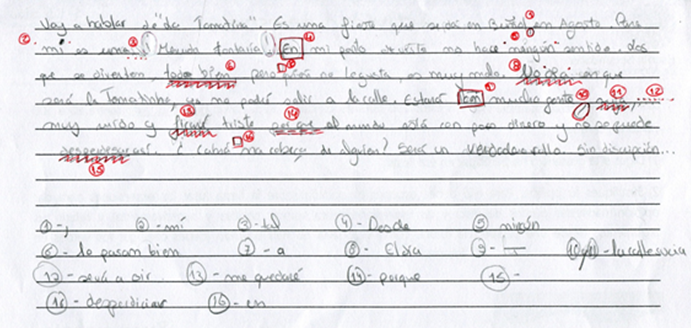 Voy a hablar de "La Tomatina". Es una fiesta que se da en Buñol, en Agosto. Para
mí es una Menuda tontería! En mi punto de vista no hace ningún sentido. Los
que se divierten, todo bien, pero quien no le gusta, es muy malo. No día en que
será la Tomatinha, ya no podré salir a la calle. Estará con mucha gente
muy ruido y ficaré triste porque el mundo está con poco dinero y no se puede
desperdiçar. ¿ cabeza de alguien? Será un verdadero sin discusión...
1 - ; 2 - mí 3 - tal 4 - Desde 5 - nigún
6 - lo pasam bien 7 - a 8 - El día 9 - 10/11 - la calle sucia
12 - se va a oir 13 - me quedaré 14 - porque 15 -
16 - desperdiciar 16 - en